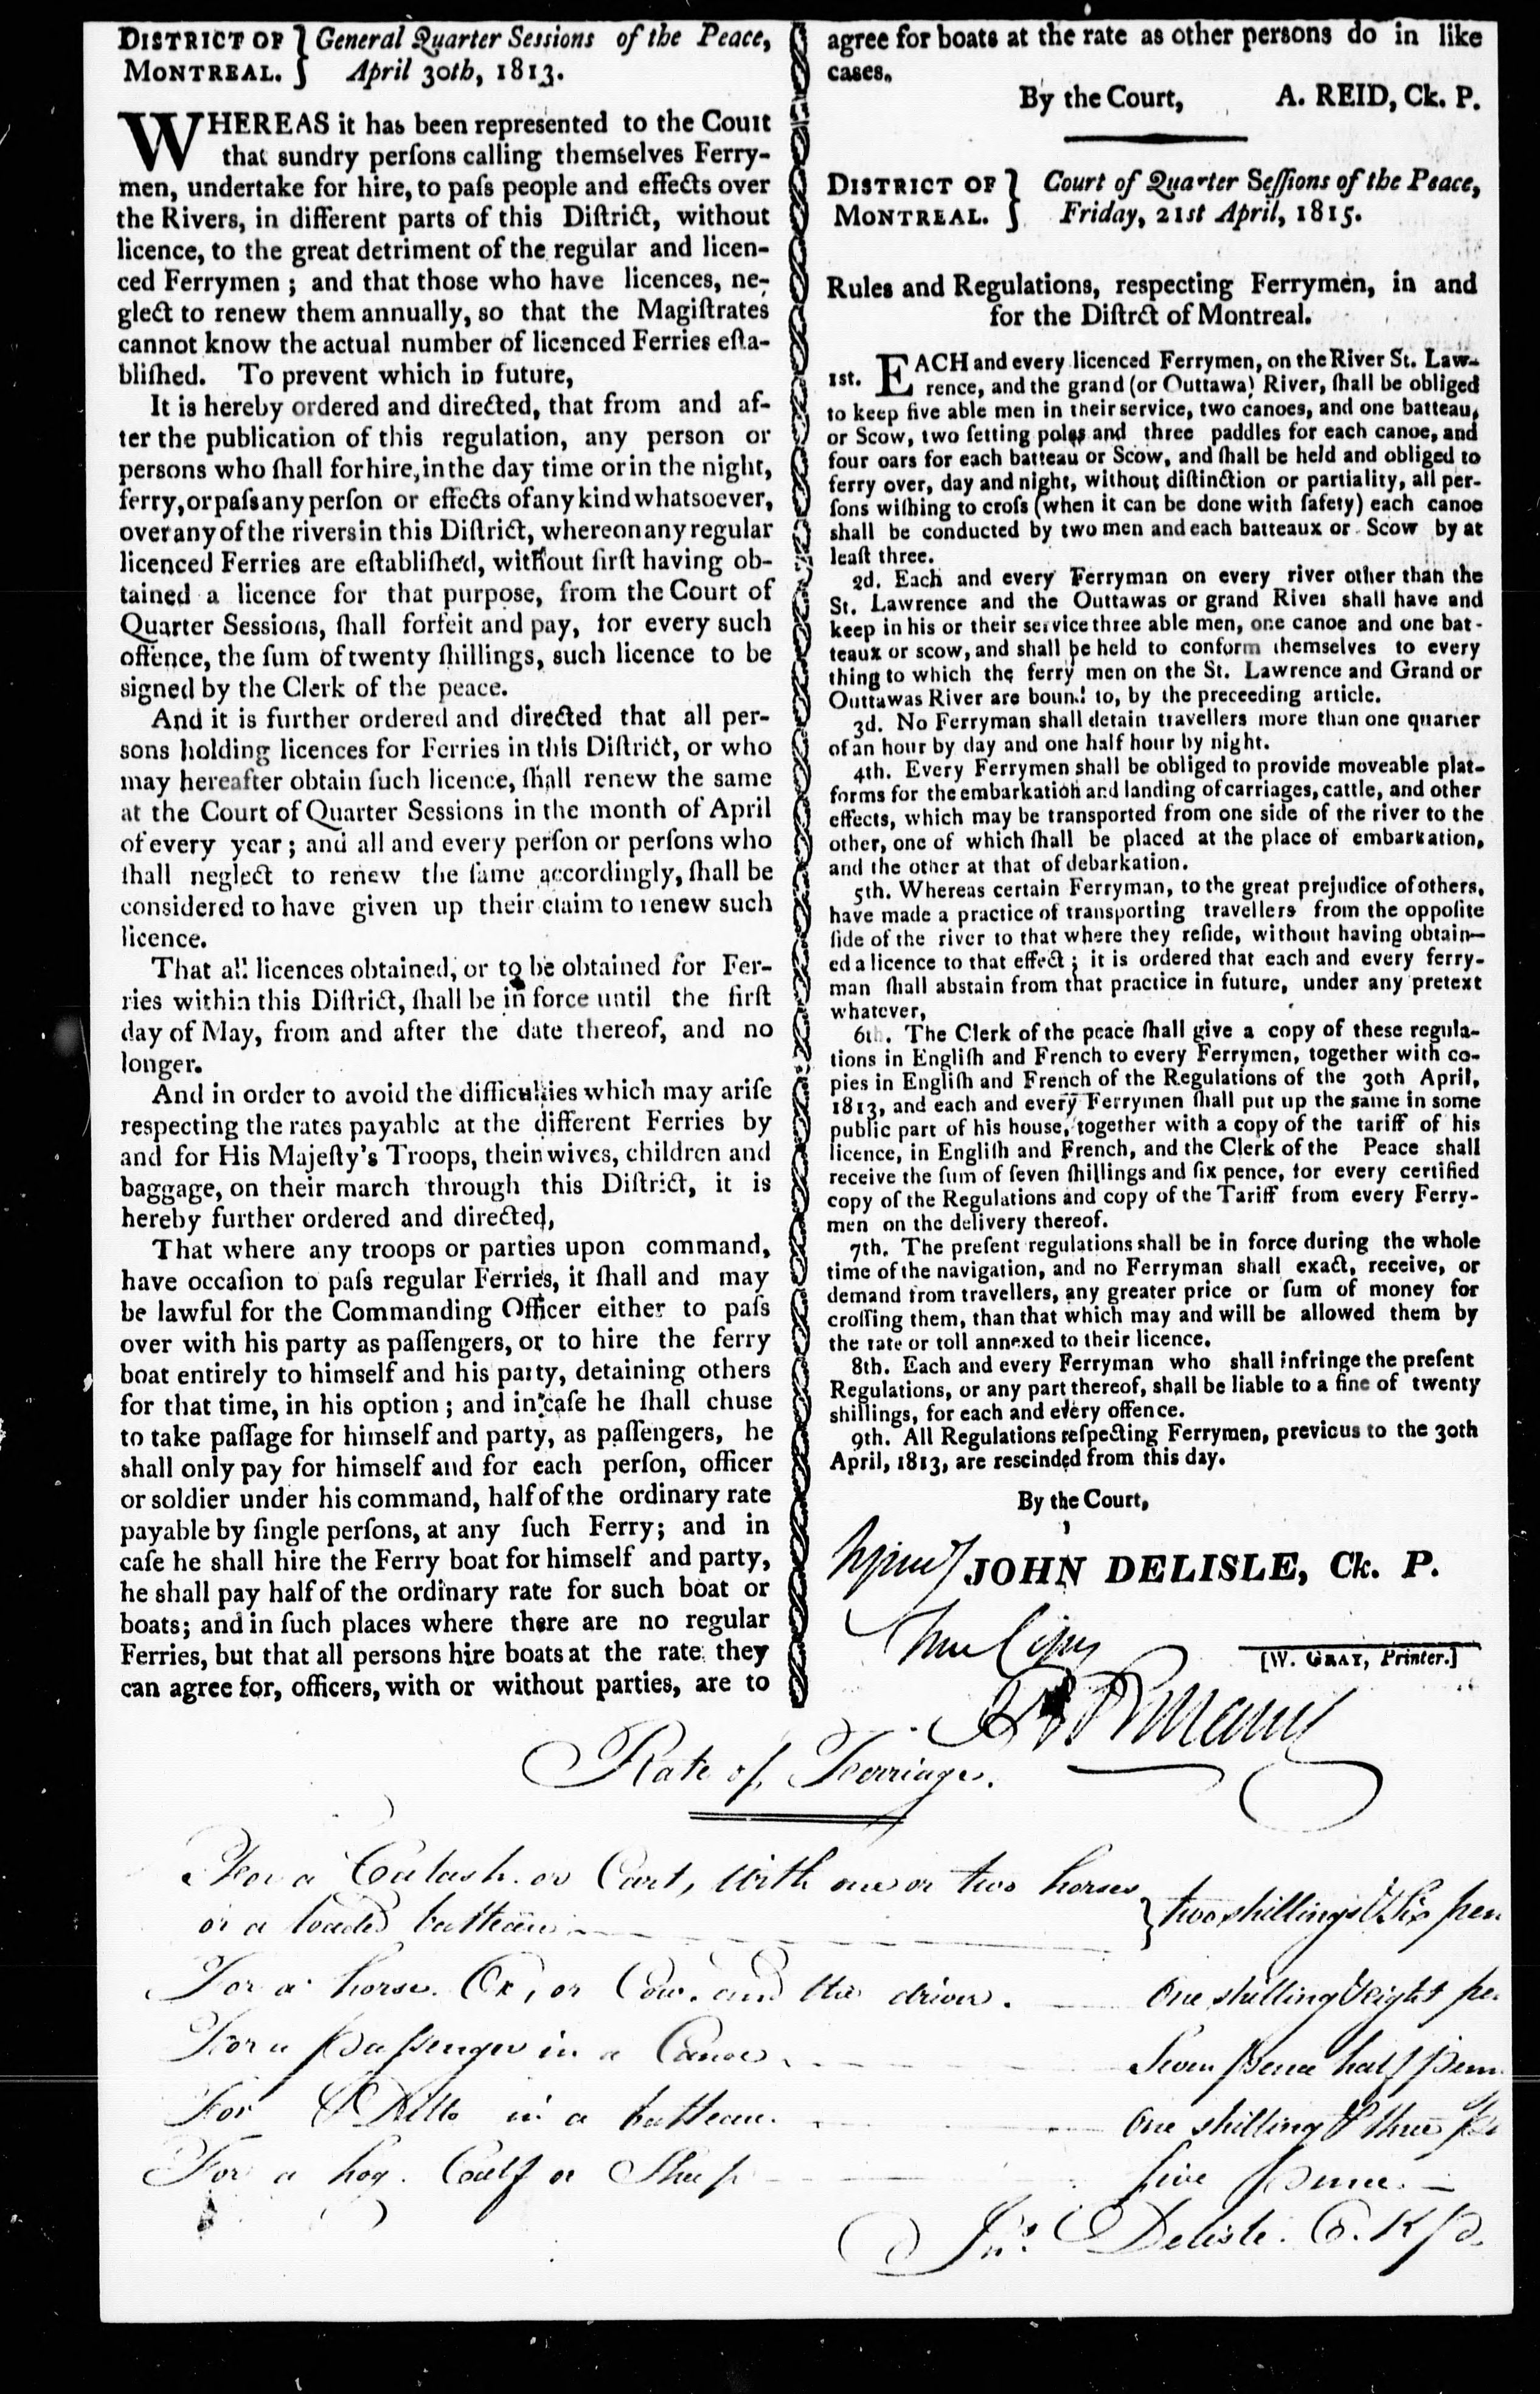 DISTRICT OF } General Quarter Sessions of the Peace,
MONTREAL. } April 30th, 1813.
WHEREAS it has been represented to the Court
that sundry perſons calling themselves Ferry-
men, undertake for hire, to paſs people and effects over
the Rivers, in different parts of this Diſtrict, without
licence, to the great detriment of the regular and licen-
ced Ferrymen ; and that those who have licences, ne-
glect to renew them annually, so that the Magiſtrates
cannot know the actual number of licenced Ferries eſta-
bliſhed. To prevent which in future,
It is hereby ordered and directed, that from and af-
ter the publication of this regulation, any person or
persons who ſhall for hire, in the day time or in the night,
ferry, or paſs any perſon or effects of any kind whatsoever,
over any of the rivers in this Diſtrict, whereon any regular
licenced Ferries are eſtabliſhed, without firſt having ob-
tained a licence for that purpose, from the Court of
Quarter Sessions, ſhall forfeit and pay, for every such
offence, the ſum of twenty ſhillings, such licence to be
signed by the Clerk of the peace.
And it is further ordered and directed that all per-
sons holding licences for Ferries in this Diſtrict, or who
may hereafter obtain ſuch licence, ſhall renew the same
at the Court of Quarter Sessions in the month of April
of every year ; and all and every perſon or perſons who
ſhall neglect to renew the ſame accordingly, ſhall be
considered to have given up their claim to renew such
licence.
That all licences obtained, or to be obtained for Fer-
ries within this Diſtrict, ſhall be in force until the firſt
day of May, from and after the date thereof, and no
longer.
And in order to avoid the difficulties which may ariſe
respecting the rates payable at the different Ferries by
and for His Majeſty's Troops, their wives, children and
baggage, on their march through this Diſtrict, it is
hereby further ordered and directed,
That where any troops or parties upon command,
have occaſion to paſs regular Ferries, it ſhall and may
be lawful for the Commanding Officer either to paſs
over with his party as paſſengers, or to hire the ferry
boat entirely to himself and his party, detaining others
for that time, in his option ; and in caſe he ſhall chuse
to take paſſage for himself and party, as paſſengers, he
shall only pay for himself and for each perſon, officer
or soldier under his command, half of the ordinary rate
payable by ſingle perſons, at any ſuch Ferry; and in
caſe he shall hire the Ferry boat for himself and party,
he shall pay half of the ordinary rate for such boat or
boats; and in ſuch places where there are no regular
Ferries, but that all persons hire boats at the rate they
can agree for, officers, with or without parties, are to
agree for boats at the rate as other persons do in like
cases.
By the Court, A. REID, Ck. P.
DISTRICT OF } Court of Quarter Seſſions of the Peace,
MONTREAL. } Friday, 21st April, 1815.
Rules and Regulations, respecting Ferrymen, in and
for the Diſtrct of Montreal.
1st. EACH and every licenced Ferrymen, on the River St. Law-
rence, and the grand (or Outtawa) River, ſhall be obliged
to keep five able men in their service, two canoes, and one batteau,
or Scow, two ſetting poles and three paddles for each canoe, and
four oars for each batteau or Scow, and ſhall be held and obliged to
ferry over, day and night, without diſtinction or partiality, all per-
ſons wiſhing to croſs (when it can be done with ſafety) each canoe
shall be conducted by two men and each batteaux or Scow by at
leaſt three.
2d. Each and every Ferryman on every river other than the
St. Lawrence and the Outtawas or grand River shall have and
keep in his or their service three able men, one canoe and one bat-
teaux or scow, and shall be held to conform themselves to every
thing to which the ferry men on the St. Lawrence and Grand or
Outtawas River are bound to, by the preceeding article.
3d. No Ferryman shall detain travellers more than one quarter
of an hour by day and one half hour by night.
4th. Every Ferrymen shall be obliged to provide moveable plat-
forms for the embarkation and landing of carriages, cattle, and other
effects, which may be transported from one side of the river to the
other, one of which ſhall be placed at the place of embarkation,
and the other at that of debarkation.
5th. Whereas certain Ferryman, to the great prejudice of others,
have made a practice of transporting travellers from the oppoſite
ſide of the river to that where they reſide, without having obtain—
ed a licence to that effect ; it is ordered that each and every ferry-
man shall abstain from that practice in future, under any pretext
whatever,
6th. The Clerk of the peace ſhall give a copy of these regula-
tions in Engliſh and French to every Ferrymen, together with co-
pies in Engliſh and French of the Regulations of the 30th April,
1813, and each and every Ferrymen ſhall put up the same in some
public part of his house, together with a copy of the tariff of his
licence, in Engliſh and French, and the Clerk of the Peace shall
receive the ſum of ſeven ſhillings and ſix pence, for every certified
copy of the Regulations and copy of the Tariff from every Ferry-
men on the delivery thereof.
7th. The preſent regulations shall be in force during the whole
time of the navigation, and no Ferryman shall exact, receive, or
demand from travellers, any greater price or ſum of money for
croſſing them, than that which may and will be allowed them by
the rate or toll annexed to their licence.
8th. Each and every Ferryman who shall infringe the preſent
Regulations, or any part thereof, shall be liable to a fine of twenty
shillings, for each and every offence.
9th. All Regulations reſpecting Ferrymen, previous to the 30th
April, 1813, are rescinded from this day.
By the Court,
JOHN DELISLE, Ck. P.
[W. GRAY, Printer.]
Rate of Ferriage.
For a Calash or Cart, with one or two horses
or a loaded batteau } two shillings & Six pen
For a horse. Ox, or Cow. and the driver. One shilling & eight pe
For a passenger in a Canoe. Seven pence half penn
For Ditto in a batteau. One shilling & three
For a hog. Calf or Sheep five pence.
Jno. Delisle. C. K P.